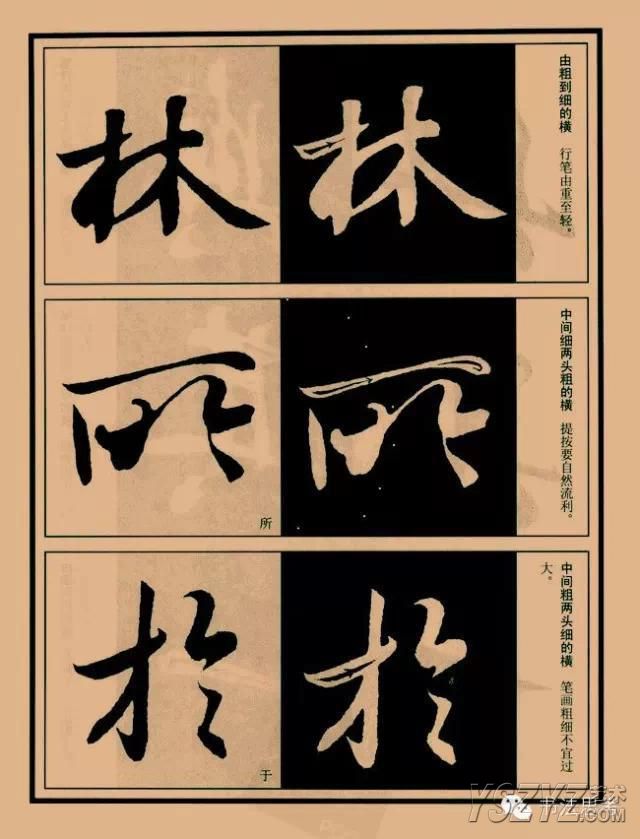 由粗到细的横 行笔由重至轻。
林 林
中间细两头粗的横 提按要自然流利。
所 所
所
中间粗两头细的横 笔画粗细不宜过
大。
於 於
于
YSZYZ艺术
.com